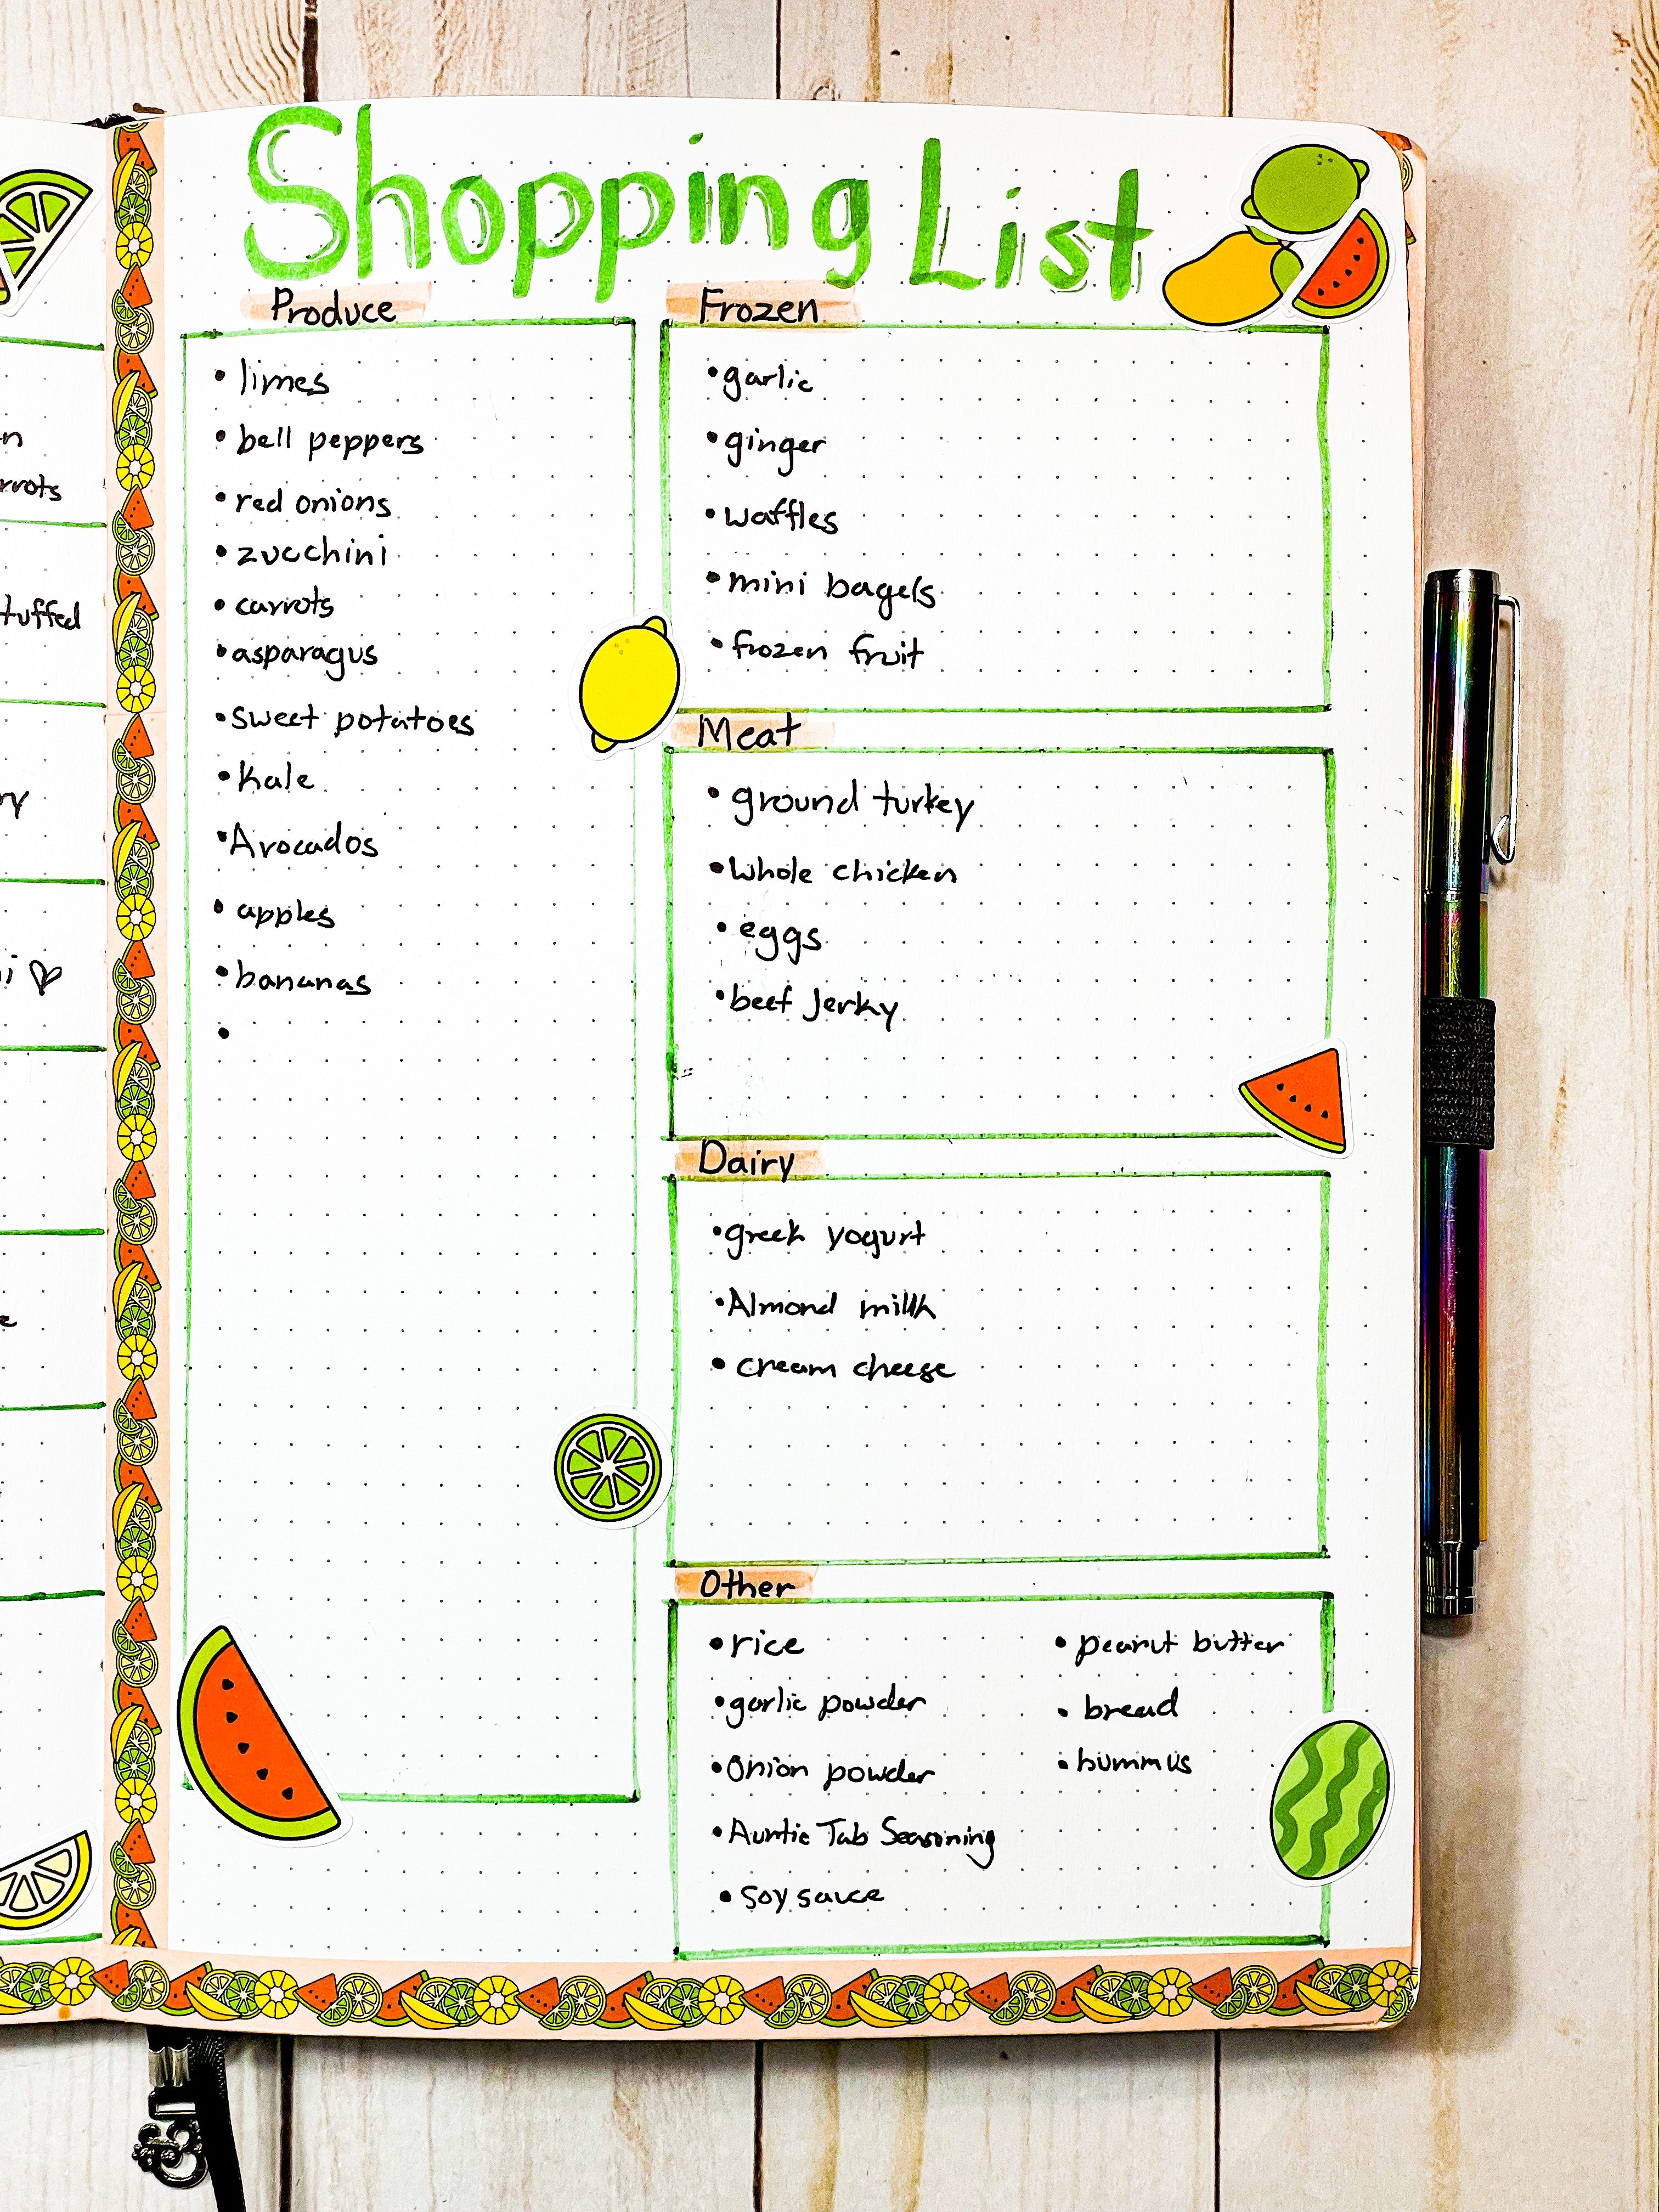 n
rrots
tuffed
ry
i ♡
e
Shopping List
Produce
• limes
• bell peppers
• red onions
• zucchini
• carrots
• asparagus
• sweet potatoes
• Kale
• Avocados
• apples
• bananas
•
Frozen
• garlic
• ginger
• waffles
• mini bagels
• frozen fruit
Meat
• ground turkey
• Whole chicken
• eggs
• beef Jerky
Dairy
• greek yogurt
• Almond milk
• cream cheese
Other
• rice
• garlic powder
• Onion powder
• Auntie Tab Seasoning
• Soy sauce
• peanut butter
• bread
• hummus